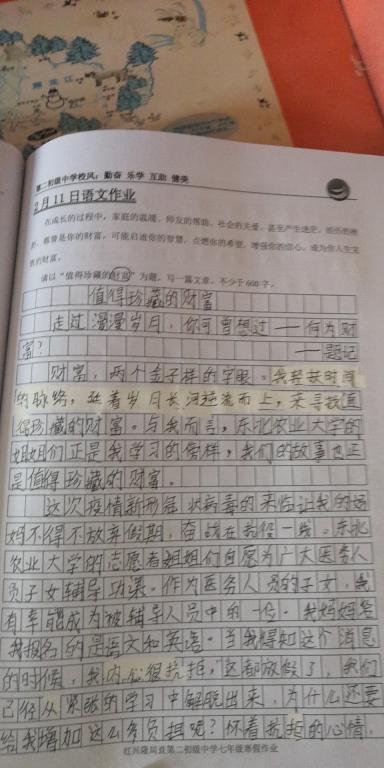 黑龙江
第二初级中学校风：勤奋 乐学 互助 健美
2月11日语文作业
在成长的过程中，家庭的温暖、师友的帮助、社会的关爱、甚至产生迷茫、经历挫
折，都曾是你的财富，可能启迪你的智慧，点燃你的希望，增强你的信心，成为你人生宝
贵的财富。
请以“值得珍藏的财富”为题，写一篇文章，不少于600字。
值得珍藏的财富
走过漫漫岁月，你可曾想过——何为财
富？——题记
财富，两个金子样的字眼。我轻敲时间
的脉络，延着岁月长河逆流而上，来寻找值
得珍藏的财富。与我而言，东北农业大学的
姐姐们正是我学习的榜样，我们的故事也正
是值得珍藏的财富。
这次疫情新形冠状病毒的来临让我的妈
妈不得不放弃假期，奋战在抗役一线。东北
农业大学的志愿者姐姐们自愿为广大医务人
员子女辅导功课。作为医务人员的子女，我
有幸能成为被辅导人员中的一份。我妈妈给
我报名的是语文和英语。当我得知这个消息
的时候，我内心很抗拒，这都放假了，我们
已经从紧张的学习中解脱出来，为什么还要
给我增加这么多负担呢？怀着抗拒的心情，
红兴隆局直第二初级中学七年级寒假作业